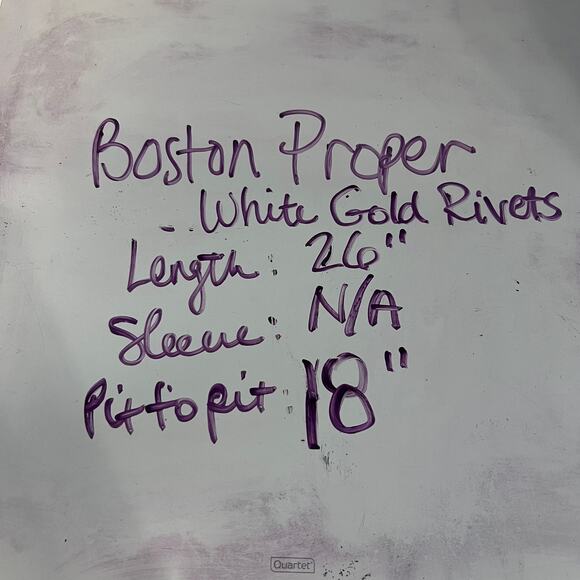 Boston Proper
-- White Gold Rivets
Length: 26"
Sleeve: N/A
Pit to pit: 18"
Quartet